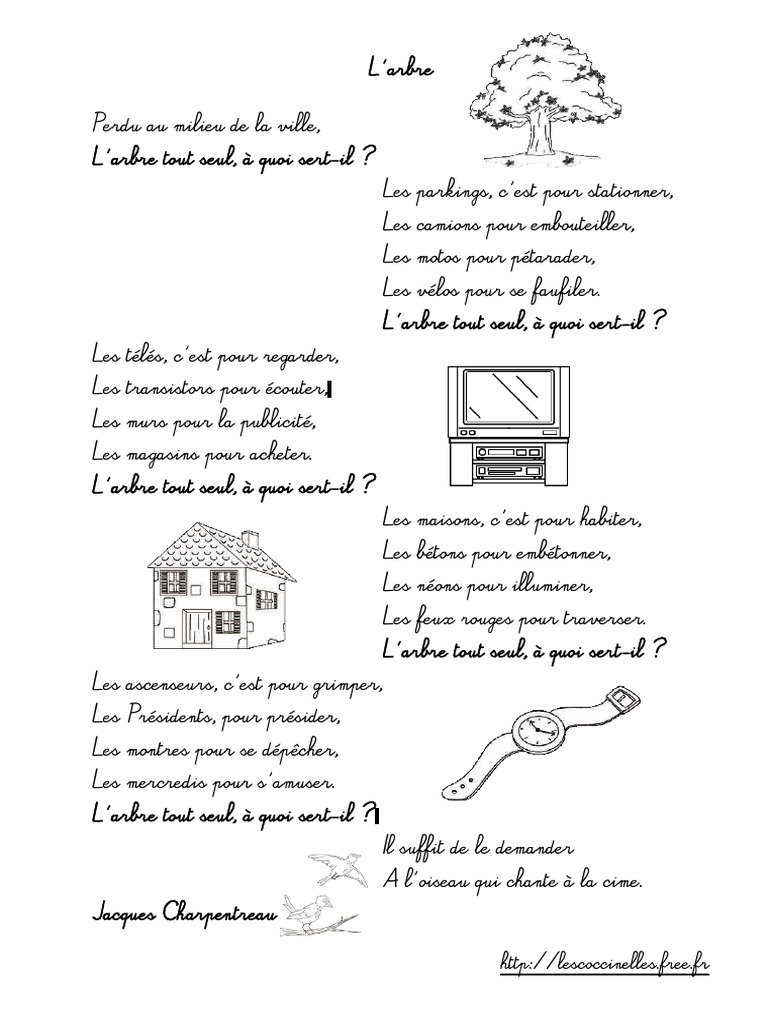 L'arbre
Perdu au milieu de la ville,
L'arbre tout seul, à quoi sert-il ?
Les parkings, c'est pour stationner,
Les camions pour embouteiller,
Les motos pour pétarader,
Les vélos pour se faufiler.
L'arbre tout seul, à quoi sert-il ?
Les télés, c'est pour regarder,
Les transistors pour écouter,
Les murs pour la publicité,
Les magasins pour acheter.
L'arbre tout seul, à quoi sert-il ?
Les maisons, c'est pour habiter,
Les bétons pour embétonner,
Les néons pour illuminer,
Les feux rouges pour traverser.
L'arbre tout seul, à quoi sert-il ?
Les ascenseurs, c'est pour grimper,
Les Présidents, pour présider,
Les montres pour se dépêcher,
Les mercredis pour s'amuser.
L'arbre tout seul, à quoi sert-il ?
Il suffit de le demander
A l'oiseau qui chante à la cime.
Jacques Charpentreau
http://lescoccinelles.free.fr